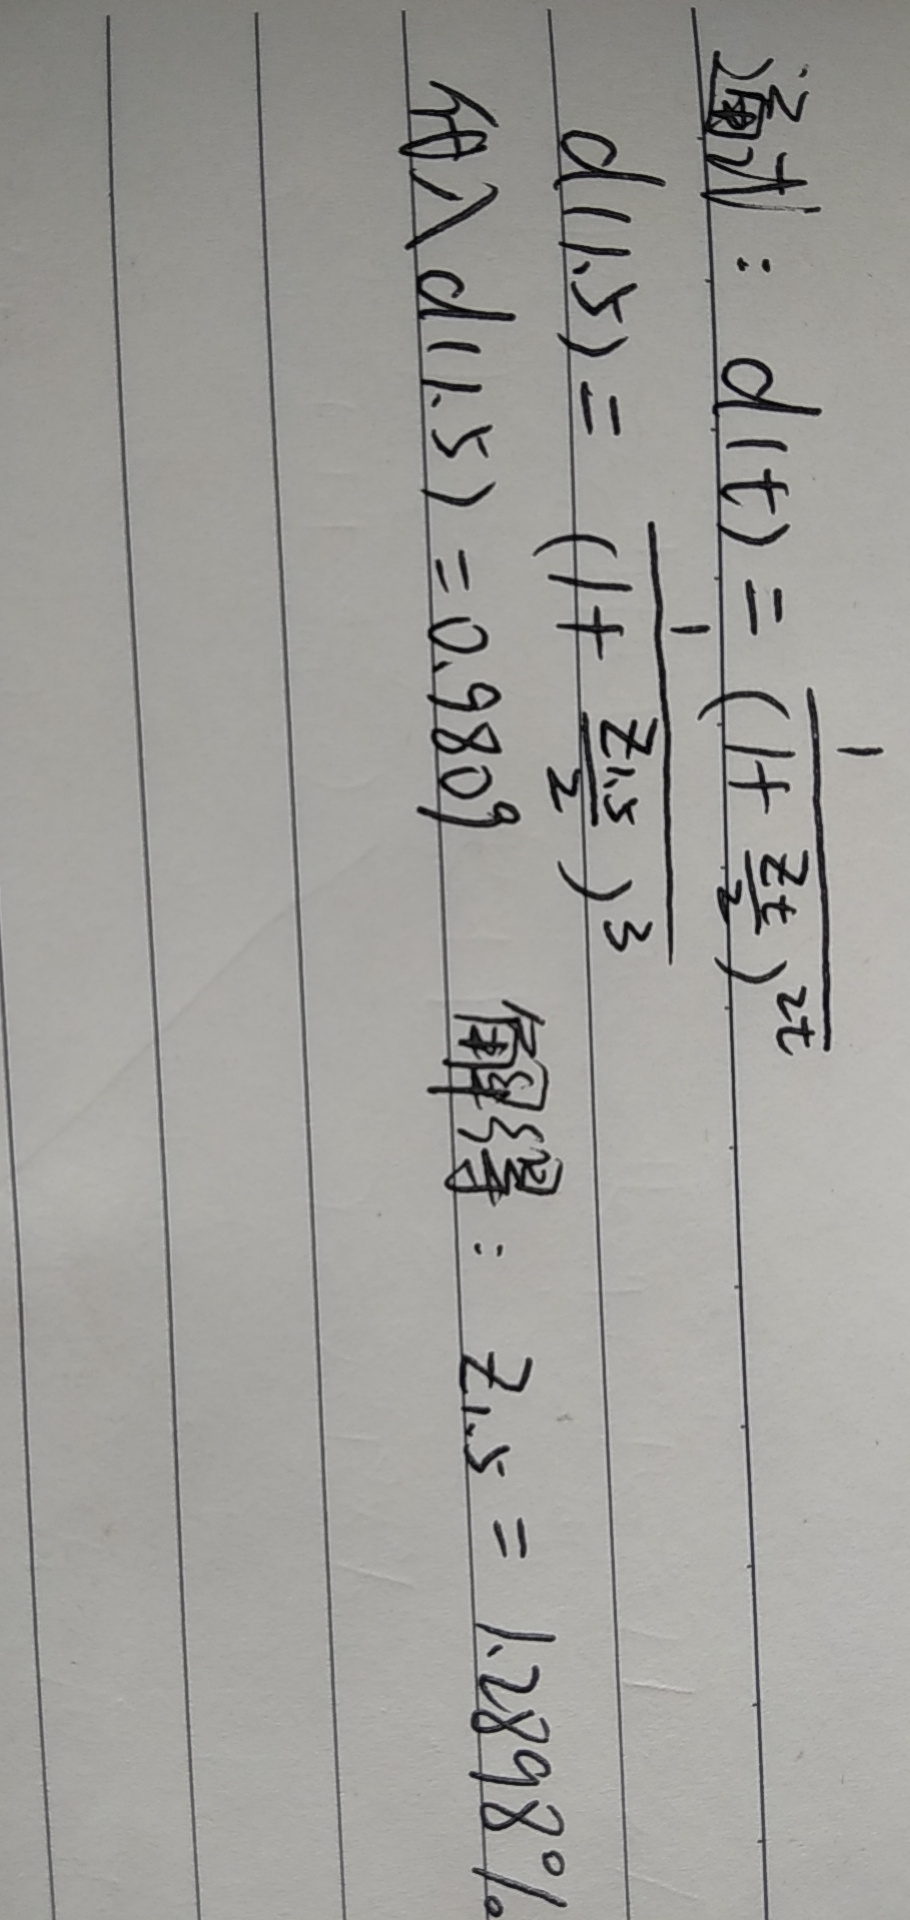 通式: d(t) = 1/(1+z_t/2)^{2t}
d(1.5) = 1/(1+z_{1.5}/2)^3
代入 d(1.5) = 0.9809 解得: z_{1.5} = 1.2898%